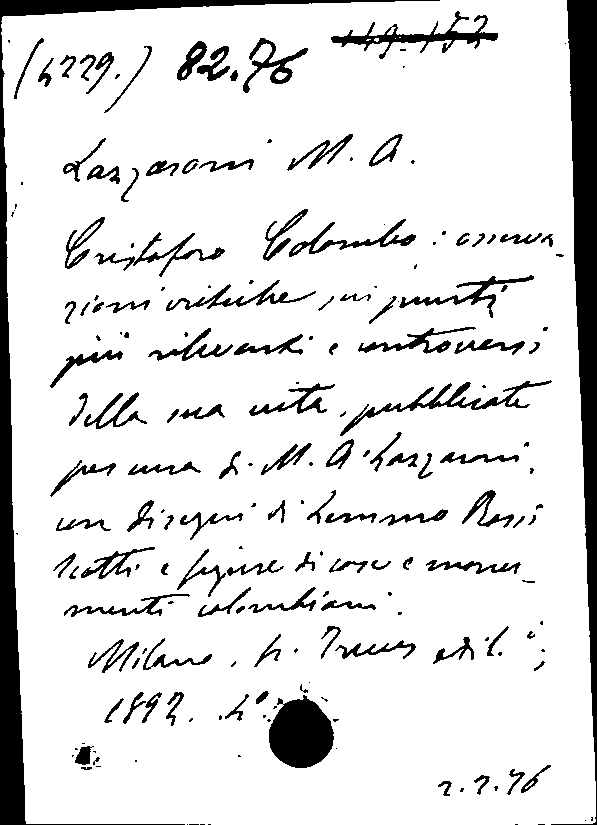 (4229.) 82.76 149-152
Lazzaroni M. A.
Cristoforo Colombo: osserva-
zioni critiche sui punti
più rilevanti e controversi
della sua vita, pubblicate
per cura di M. A. Lazzaroni,
con disegni di Lemmo Rossi
Scotti e figure di cose e monu-
menti colombiani.
Milano, fr. Treves edit.i;
1892. 4°.
2.2.76